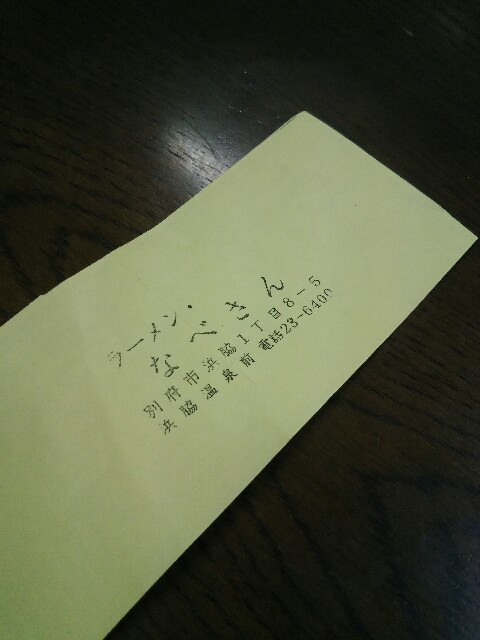 ラーメン・
なべさん
別府市浜脇1丁目8-5
浜脇温泉前 電話23-6400